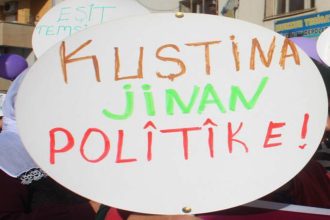 EŞİT
TEMSİ
KUŞTINA
JINAN
POLÎTÎKE!